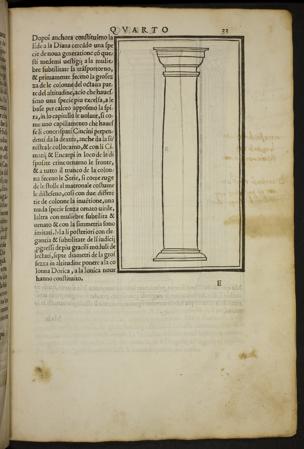 QVARTO 33
Dopoi anchora constituimo la
Ede a la Diana cercādo una spe
cie de noua generatione cō que
sti medemi uestigij a la mulie
bre subtilitate la trasportorno,
& primamente fecimo la grosseza
de le colonne del octaua par
te del altitudine, acio che haues
seno una specie piu excelsa, a le
base per calceo
ra, in lo capitello le uolute, si co
me uno capillamento che haues
se li concrispati Cincini perpen
denti da la dextra, anche da la si
nistra le collocarno, & con li Ci
matij, & Encarpi in loco de la di
sposite crine ornarno le fronte,
& a tutto il trunco de la colon
na feceno le Strie, si come ruge
de le stolle al matronale costume
le discesseno, così con due differe
tie de colonne la inuentione, una
nuda specie senza ornato uirile,
laltra con muliebre subtilita &
ornato & con la simmetria sono
imitati. Ma li posteriori con ele
gantia & subtilitate de li iudicij
progressi de piu gracili moduli de
lectati, septe diametri de la gros
seza in altitudine ponere a la co
lonna Dorica, a la Ionica noue
hanno constituito.
E